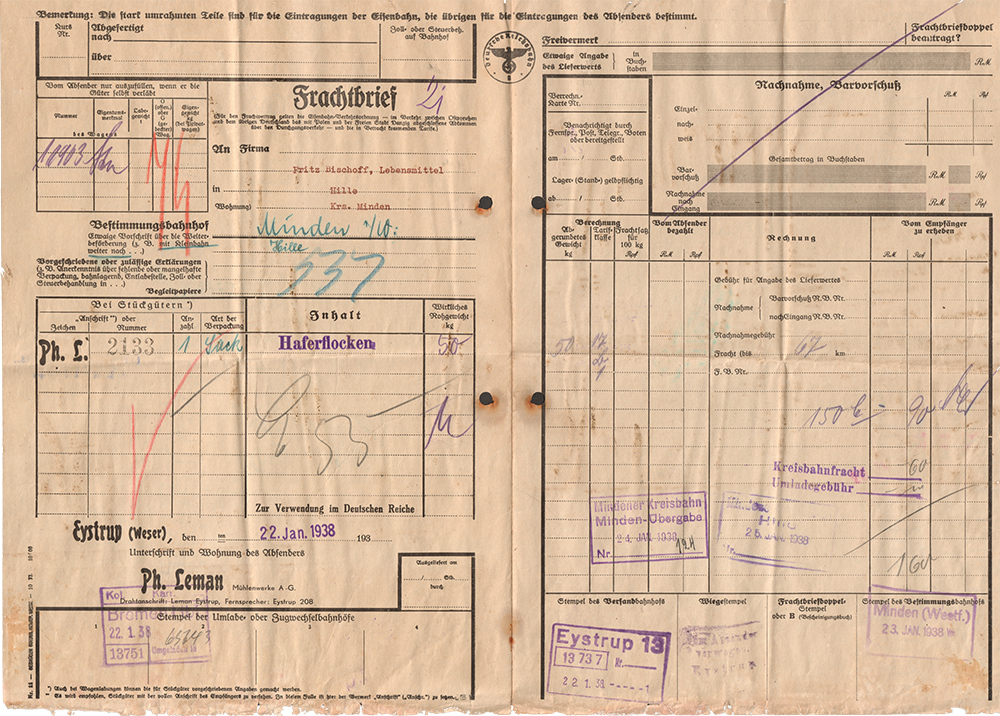 Bemerkung: Die stark umrahmten Teile sind für die Eintragungen der Eisenbahn, die übrigen für die Eintragungen des Absenders bestimmt.
Kurs Nr.
Abgefertigt nach
über
Zoll- oder Steuerbeh. auf Bahnhof
Deutsche Reichsbahn
Freivermerk
Frachtbriefdoppel beantragt?
Etwaige Angabe des Lieferwerts
in Buchstaben
RM
Vom Absender nur auszufüllen, wenn er die Güter selbst verlädt
Nummer
Eigentumsmerkmal
des Wagens
Ladegewicht
10403
Frachtbrief
(Für den Frachtvertrag gelten die Eisenbahn-Verkehrsordnung — im Verkehr zwischen Ostpreußen und dem übrigen Deutschland das mit Polen und der Freien Stadt Danzig abgeschlossene Abkommen über den Durchgangsverkehr — und die in Betracht kommenden Tarife.)
An Firma
Fritz Bischoff, Lebensmittel
in Hille
Wohnung) Krs. Minden
Bestimmungsbahnhof
Minden
Hille
Etwaige Vorschrift über die Weiterbeförderung (z. B. mit Kleinbahn weiter nach . . .)
Vorgeschriebene oder zulässige Erklärungen
(z. B. Anerkenntnis über fehlende oder mangelhafte Verpackung, bahnlagernd, Entladestelle, Zoll- oder Steuerbehandlung in . . .)
Begleitpapiere
237
Bei Stückgütern *)
„Anschrift") oder
Zeichen
Nummer
Anzahl
Art der Verpackung
Inhalt
Wirkliches Rohgewicht kg
Ph. L.
2133
1
Sack
Haferflocken
50
Zur Verwendung im Deutschen Reiche
Eystrup (Weser), den
22. Jan. 1938
193
Unterschrift und Wohnung des Absenders
Ph. Leman Mühlenwerke A.-G.
Drahtanschrift: Leman Eystrup, Fernsprecher: Eystrup 208
Ausgeliefert am
Std.
durch
Stempel der Umlade- oder Zugwechselbahnhöfe
1
2
3
4
22.1.38
13751
65743
*) Auch bei Wagenladungen können die für Stückgüter vorgeschriebenen Angaben gemacht werden.
Verrechn.-Karte Nr.
Benachrichtigt durch Fernspr., Post, Telegr., Boten oder bereitgestellt
am
Std.
Lager-(Stand-) geldpflichtig
ab
Std.
Nachnahme, Barvorschuß
RM
Rpf
Einzelnachweis
Gesamtbetrag in Buchstaben
Barvorschuß
RM
Rpf
Nachnahme nach Eingang
RM
Rpf
Berechnung
Abgerundetes Gewicht kg
Tarifklasse
Frachtsatz für 100 kg
Rpf
Vom Absender bezahlt
RM
Rpf
Rechnung
Vom Empfänger zu erheben
RM
Rpf
Gebühr für Angabe des Lieferwertes
Nachnahme
Barvorschuß N.B. Nr.
nach Eingang N.B. Nr.
Nachnahmegebühr
50
Fracht (bis 67 km
F. B. Nr.
150
90
Kreisbahnfracht
60
Umladegebühr
160
Mindener Kreisbahn
Minden-Übergabe
24. JAN. 1938
Nr.
124
25. JAN. 1938
Nr.
Stempel des Versandbahnhofs
Wiegestempel
Frachtbriefdoppel-Stempel
oder B (Bescheinigungsbuch)
Stempel des Bestimmungsbahnhofs
Eystrup 13
13737
Nr.
22.1.38.-----1
Minden (Westf.)
23. JAN. 1938